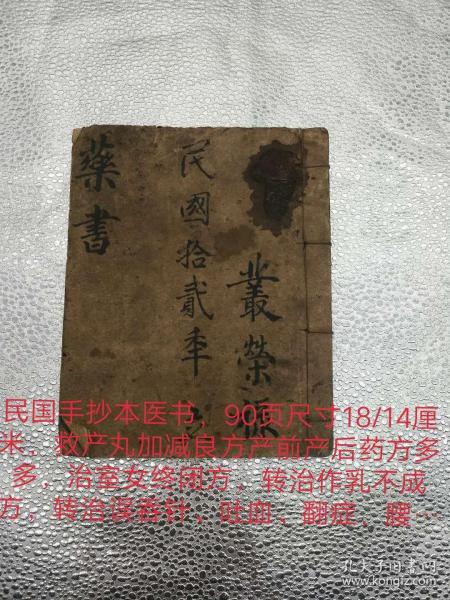 藥書
民國拾貳年
叢榮源
民国手抄本医书，90页尺寸18/14厘
米，救产丸加减良方产前产后药方多
多，治室女终闭方，转治作乳不成
方，转治误吞针，吐血、翻症，腰…
孔夫子旧书网
www.kongfz.com